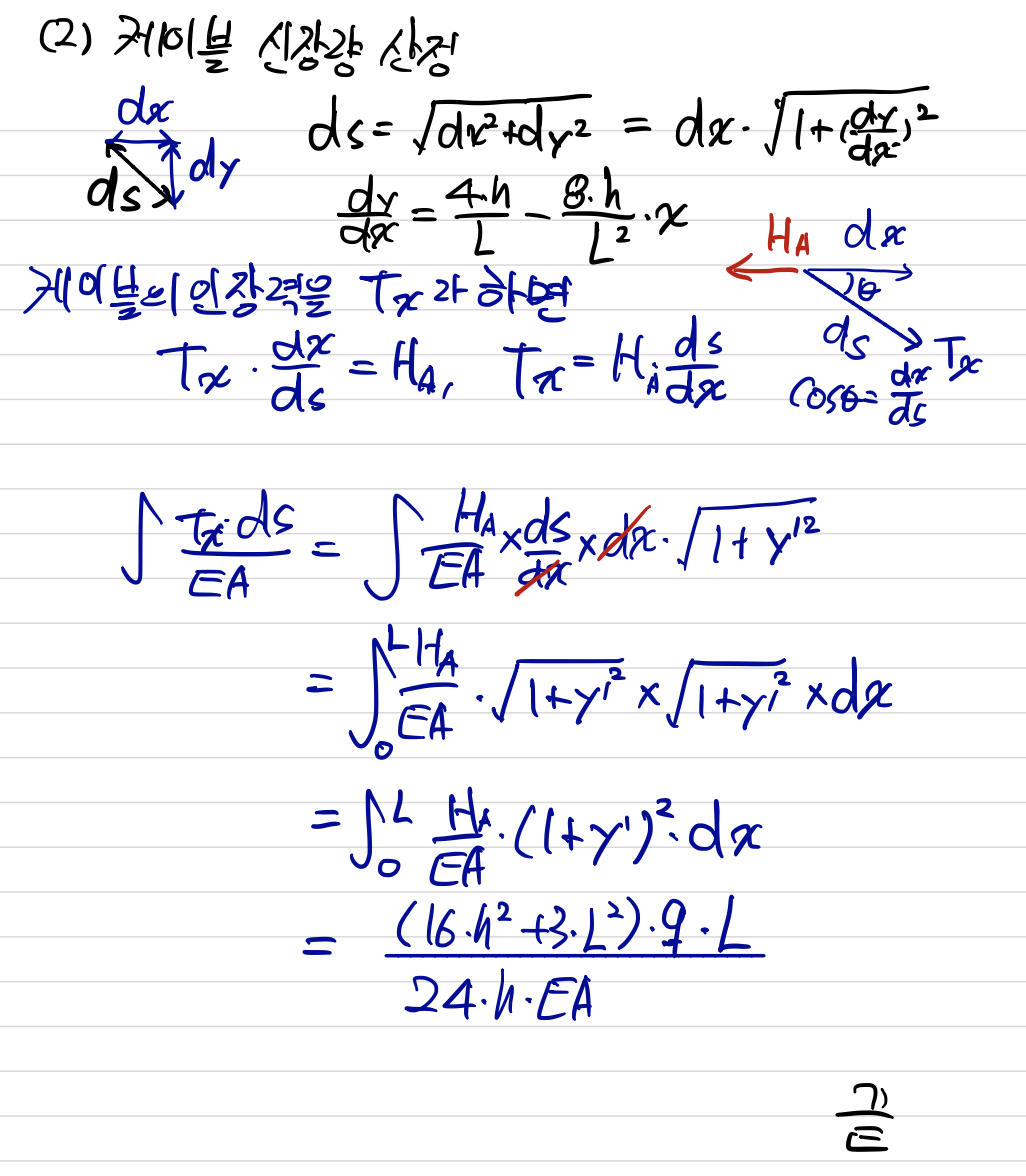 (2) 케이블 신장량 산정
dx
dy
ds
ds = √(dx²+dy²) = dx · √(1+(dy/dx)²)
dy/dx = 4·h/L − 8·h/L² · x
H_A dx
θ
ds T_x
cosθ = dx/ds
케이블의 인장력을 T_x라 하면
T_x · dx/ds = H_A, T_x = H_A ds/dx
∫ T_x·ds/EA = ∫ H_A/EA × ds/dx × dx · √(1+y'²)
= ∫₀ᴸ H_A/EA · √(1+y'²) × √(1+y'²) × dx
= ∫₀ᴸ H_A/EA · (1+y')² · dx
= (16·h²+3·L²)·q·L / 24·h·EA
끝